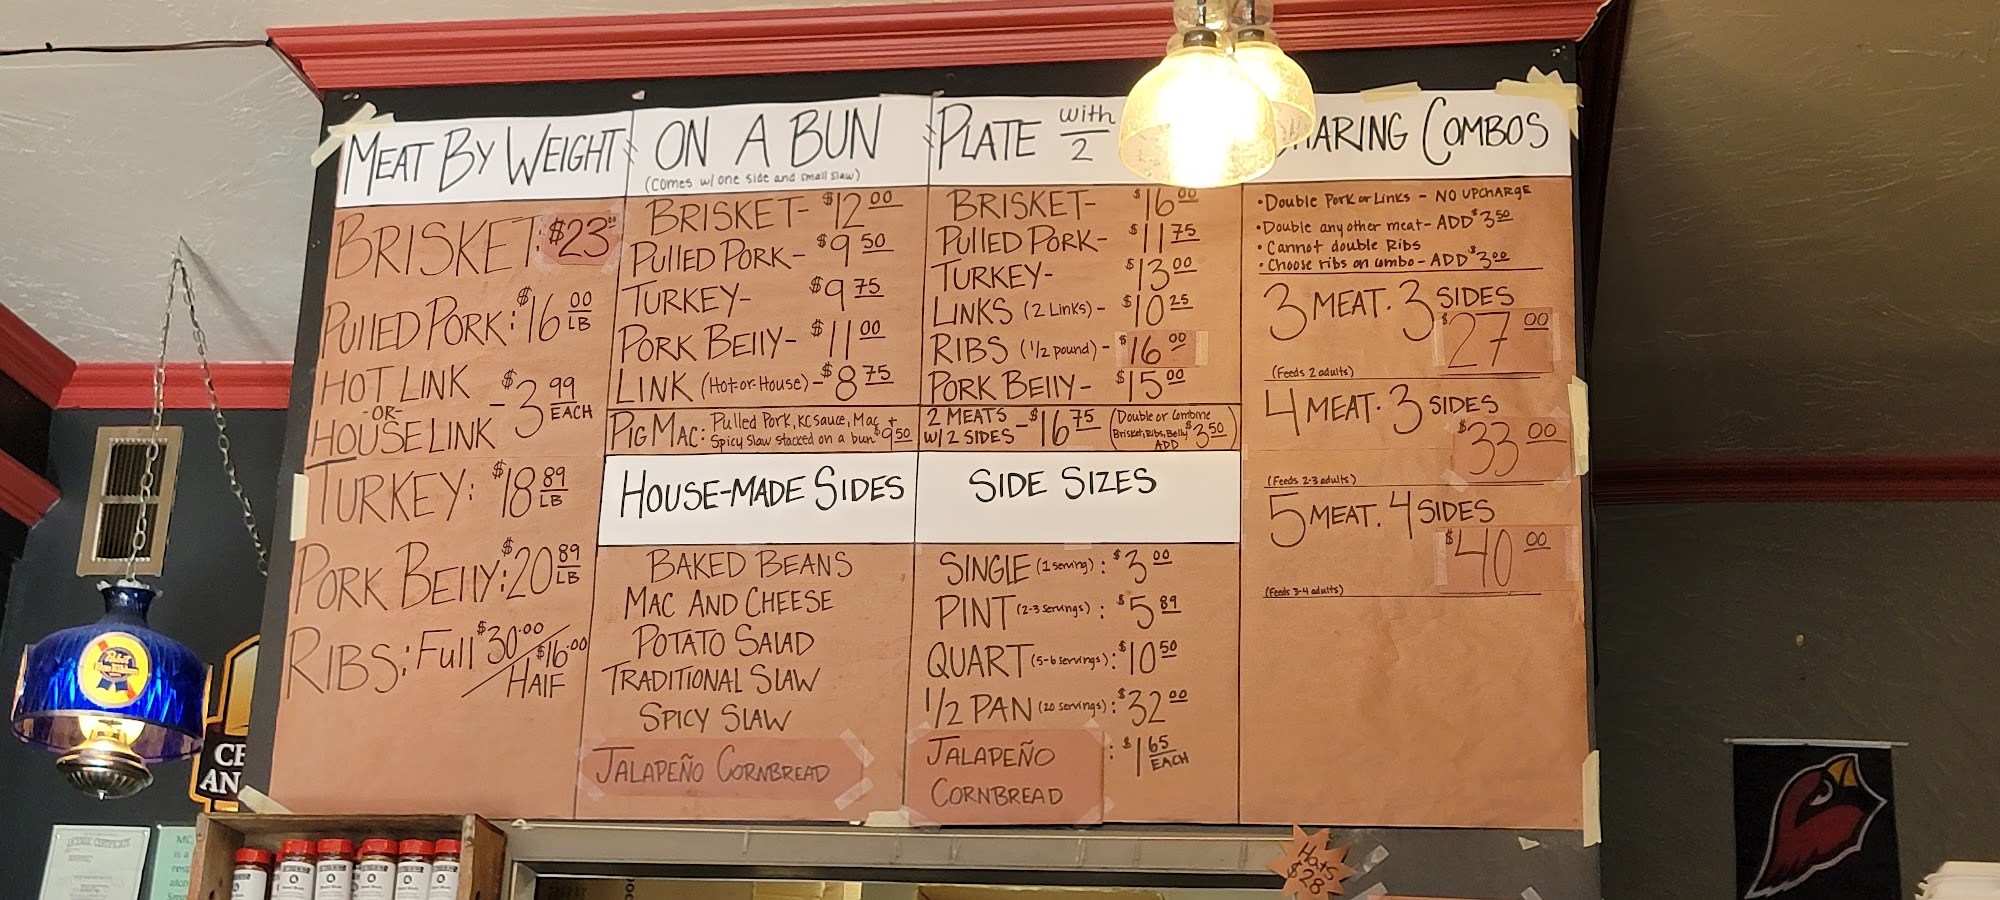 MEAT BY WEIGHT
BRISKET: $23.00
PULLED PORK: $16 00 LB
HOT LINK
-OR-
HOUSE LINK - $3 99 EACH
TURKEY: $18 89 LB
PORK BELLY: $20 89 LB
RIBS: Full $30.00 / $16.00 HALF
ON A BUN
(comes w/ one side and small slaw)
BRISKET- $12 00
PULLED PORK- $9 50
TURKEY- $9 75
PORK BELLY- $11 00
LINK (Hot-or-House) - $8 75
PIG MAC: Pulled Pork, KC Sauce, Mac +
Spicy Slaw stacked on a bun $9 50
HOUSE-MADE SIDES
BAKED BEANS
MAC AND CHEESE
POTATO SALAD
TRADITIONAL SLAW
SPICY SLAW
JALAPEÑO CORNBREAD
PLATE with 2
BRISKET- $16 00
PULLED PORK- $11 75
TURKEY- $13 00
LINKS (2 Links) - $10 25
RIBS (1/2 pound) - $16 00
PORK BELLY- $15 00
2 MEATS
W/ 2 SIDES - $16 75
(Double or Combine
Brisket, Ribs, Belly
ADD $3 50)
SIDE SIZES
SINGLE (1 serving) : $3 00
PINT (2-3 servings) : $5 89
QUART (5-6 servings) : $10 50
1/2 PAN (20 servings) : $32 00
JALAPEÑO
CORNBREAD : $1 65 EACH
SHARING COMBOS
• Double Pork or Links - NO UPCHARGE
• Double any other meat - ADD $3 50
• Cannot double Ribs
• Choose ribs on combo - ADD $3 00
3 MEAT. 3 SIDES
$27 00
(Feeds 2 adults)
4 MEAT. 3 SIDES
$33 00
(Feeds 2-3 adults)
5 MEAT. 4 SIDES
$40 00
(Feeds 3-4 adults)
Hats
$28
CE
AN